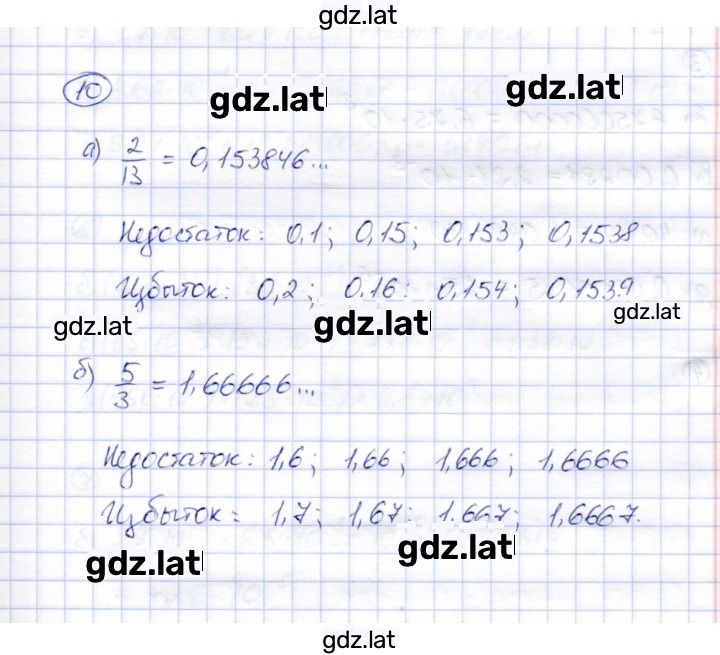 gdz.lat
10
gdz.lat gdz.lat
а) 2/13 = 0,153846...
Недостаток: 0,1; 0,15; 0,153; 0,1538
Избыток: 0,2; 0.16: 0,154; 0,1539
gdz.lat gdz.lat gdz.lat
б) 5/3 = 1,66666...
Недостаток: 1,6; 1,66; 1,666; 1,6666
Избыток: 1,7; 1,67: 1.667; 1,6667.
gdz.lat gdz.lat
gdz.lat